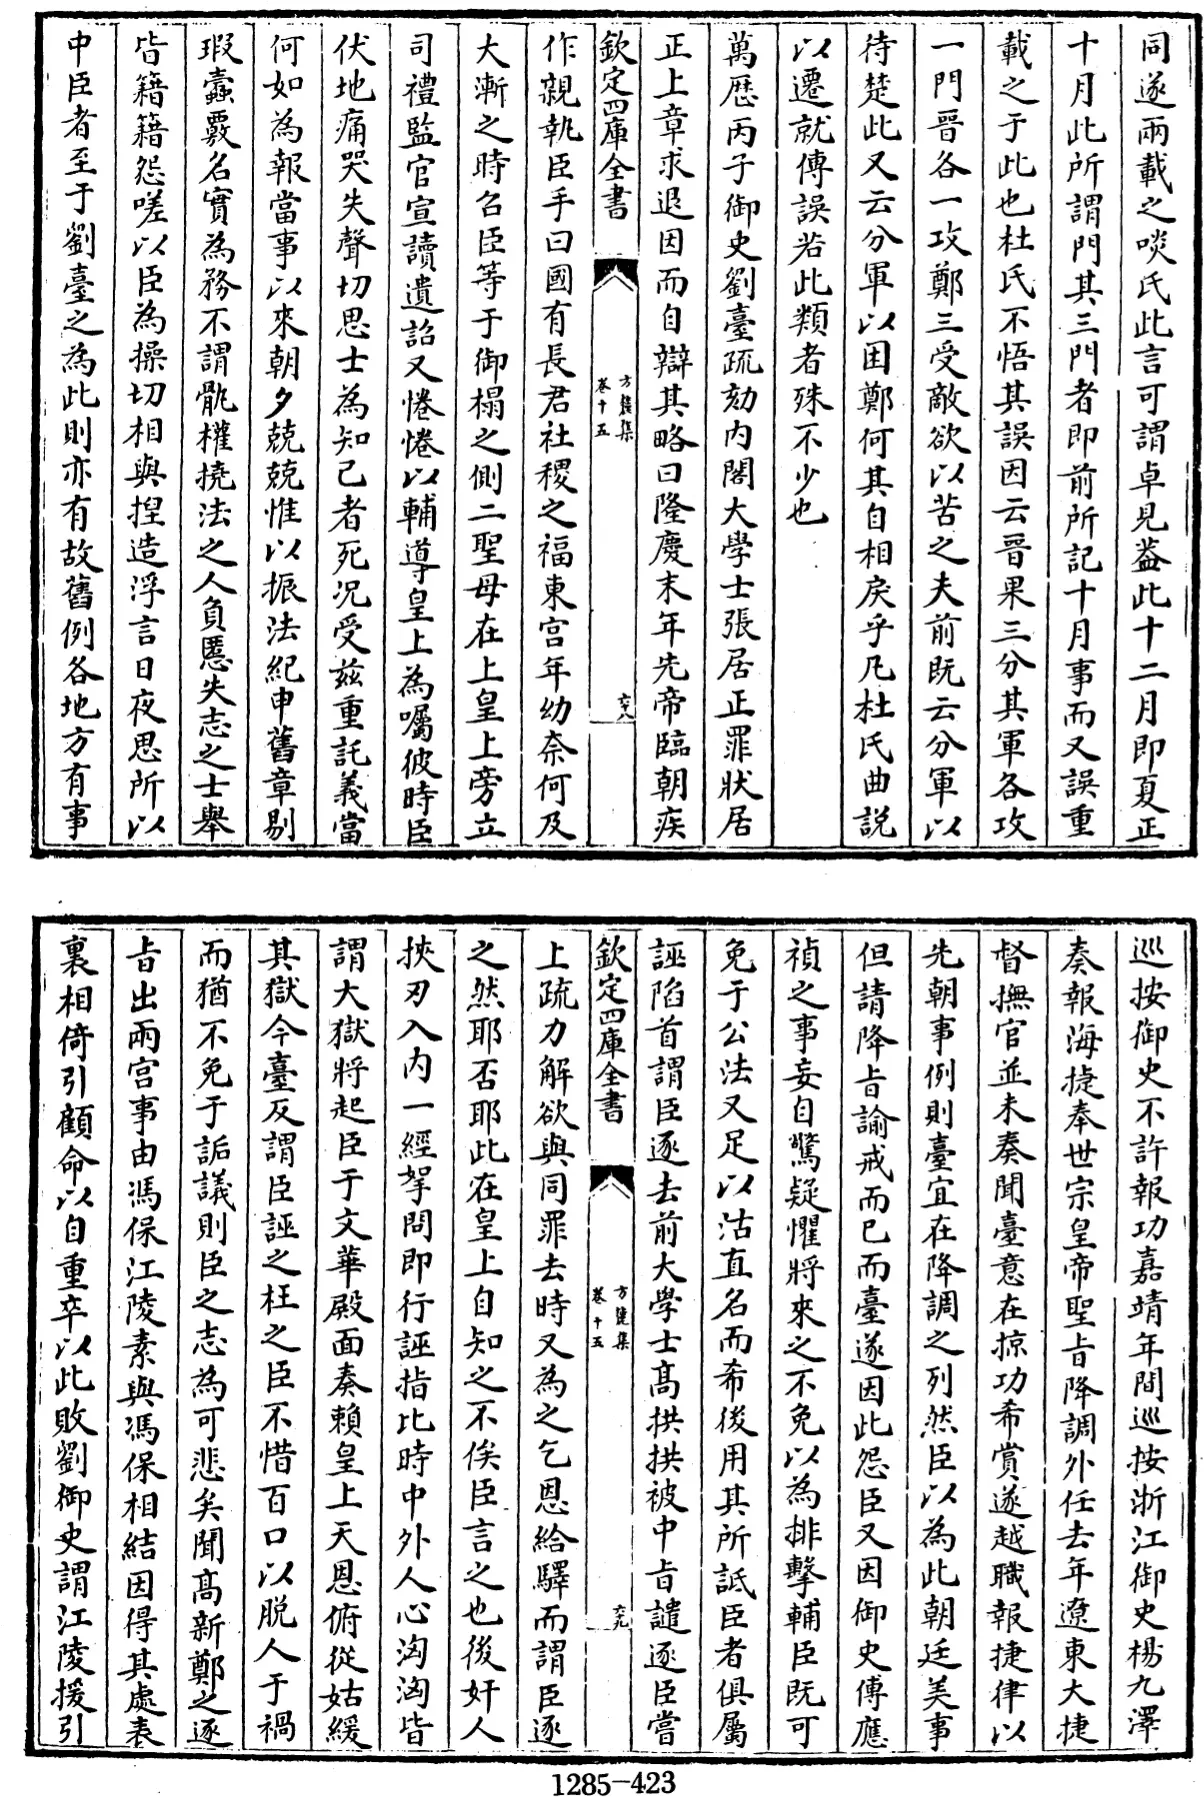 同遂兩載之啖氏此言可謂卓見葢此十二月即夏正
十月此所謂門其三門者即前所記十月事而又誤重
載之于此也杜氏不悟其誤因云晉果三分其軍各攻
一門晉各一攻鄭三受敵欲以苦之夫前既云分軍以
待楚此又云分軍以困鄭何其自相戾乎凡杜氏曲説
以遷就傳誤若此類者殊不少也
萬歷丙子御史劉臺疏劾内閣大學士張居正罪狀居
正上章求退因而自辯其略曰隆慶末年先帝臨朝疾
欽定四庫全書
方麓集
卷十五
六八
作親執臣手曰國有長君社稷之福東宫年幼奈何及
大漸之時召臣等于御榻之側二聖母在上皇上旁立
司禮監官宣讀遺詔又惓惓以輔導皇上為囑彼時臣
伏地痛哭失聲切思士為知己者死况受兹重託義當
何如為報當事以來朝夕兢兢惟以振法紀申舊章剔
瑕蠧覈名實為務不謂骫權撓法之人負慝失志之士舉
皆籍籍怨嗟以臣為操切相與揑造浮言日夜思所以
中臣者至于劉臺之為此則亦有故舊例各地方有事
巡按御史不許報功嘉靖年間巡按浙江御史楊九澤
奏報海捷奉世宗皇帝聖㫖降調外任去年遼東大捷
督撫官並未奏聞臺意在掠功希賞遂越職報捷律以
先朝事例則臺宜在降調之列然臣以為此朝廷美事
但請降㫖諭戒而已而臺遂因此怨臣又因御史傅應
禎之事妄自驚疑懼將來之不免以為排擊輔臣既可
免于公法又足以沽直名而希後用其所詆臣者俱屬
誣陷首謂臣逐去前大學士髙拱拱被中㫖譴逐臣嘗
欽定四庫全書
方麓集
卷十五
六九
上疏力解欲與同罪去時又為之乞恩給驛而謂臣逐
之然耶否耶此在皇上自知之不俟臣言之也後奸人
挾刃入内一經拏問即行誣指比時中外人心洶洶皆
謂大獄將起臣于文華殿面奏賴皇上天恩俯從姑緩
其獄今臺反謂臣誣之枉之臣不惜百口以脱人于禍
而猶不免于詬議則臣之志為可悲矣聞髙新鄭之逐
㫖出兩宫事由馮保江陵素與馮保相結因得其處表
裏相倚引顧命以自重卒以此敗劉御史謂江陵援引
1285-423